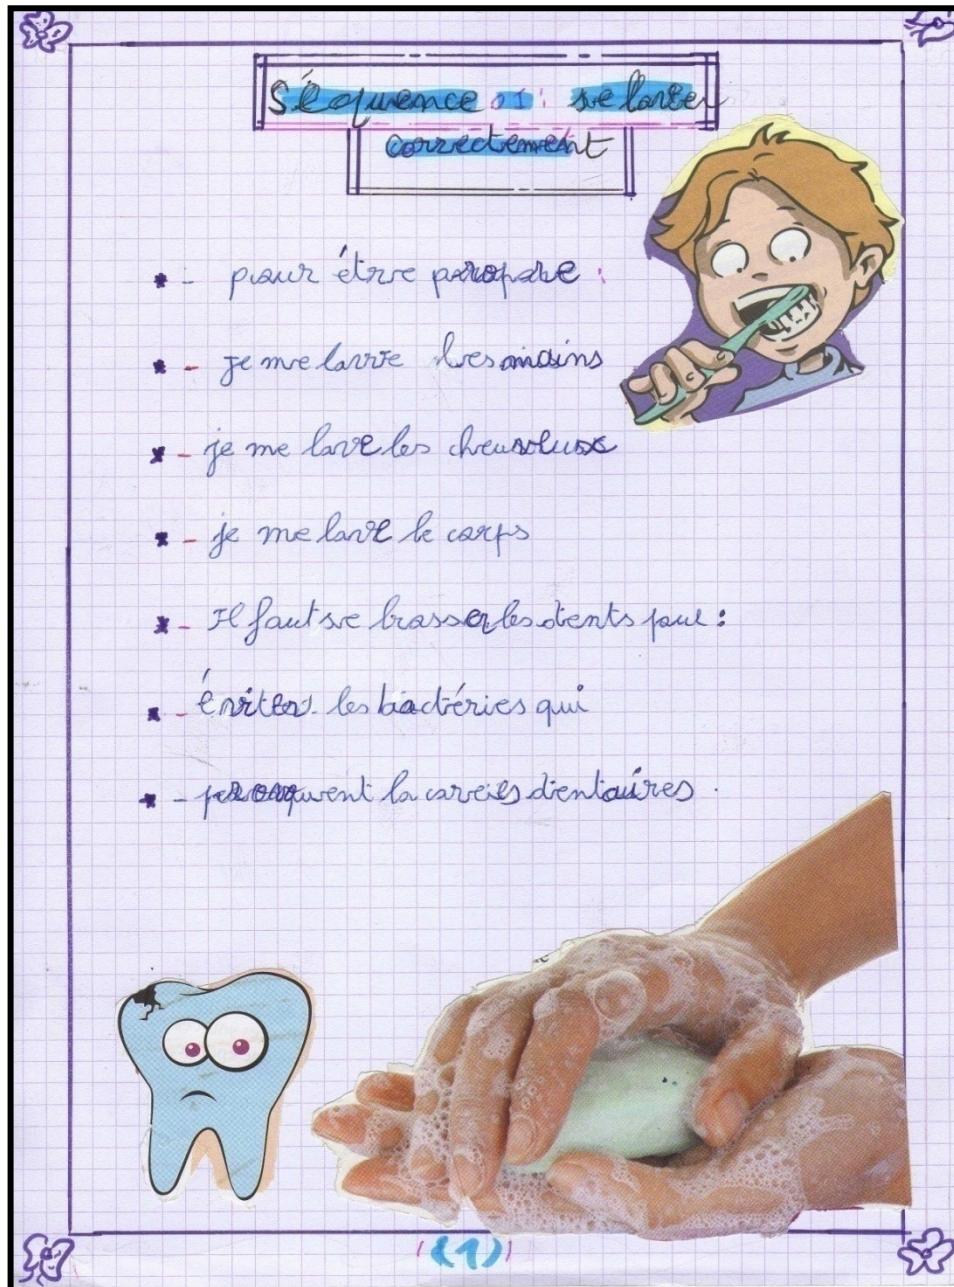 Séquence 01: se laver
correctement
- pour être propre :
- je me lave les mains
- je me lave les cheuveluxe
- je me lave le corps
- Il faut se brosser les dents pour :
- éviter les bactéries qui
- provoquent la careies dentaires.
(1)